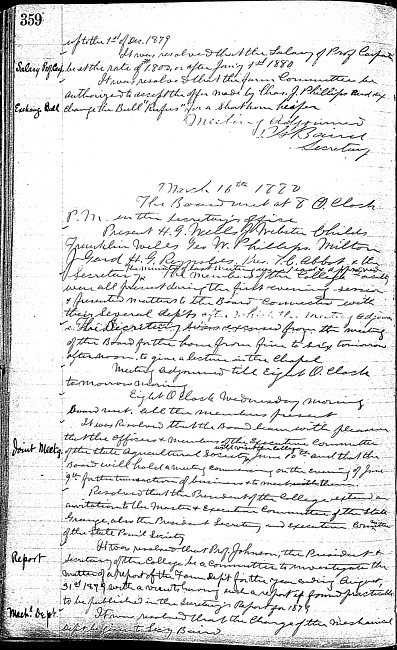 359
up to the 1st of Dec. 1879
It was resolved that the Salary of Prof Carpenter
Salary Prof Carp. be at the rate of $1800, on & after Jany 1st 1880
It was resolved that the farm Committee be
authorized to accept the offer made by Chas. J. Phillips and ex
Exchang Bull change the Bull "Rufus" for a Shorthorn heifer
Meeting adjourned
Baird
Secretary
March 16th 1880
The Board met at 8 O Clock
P.M. in the Secretary's office
Present H. G. Wells, J. Webster Childs
Franklin Wells Geo W. Phillips, Milton
J Gard H. G. Reynolds, Pres. T. C. Abbot, & the
Secretary The minutes of last meeting were read & approved
The Members of the College faculty
were all present during the first evening session
& presented matters to the Board connected with
their several depts after which the meeting adjourn
The Secretary was excused from the meeting
of the Board for the hour from five to six tomorrow
afternoon to give a lecture in the Chapel
Meeting adjourned till Eight O Clock
tomorrow morning
Eight O Clock Wednesday morning
Board met. all the members present
It was Resolved that the Board learn with pleasure
that the Officers & Members of the Executive Committee
Joint Meetg. of the State Agricultural Society and that the
Board will hold a meeting commencing on the evening of June
9th for the transaction of business & to meet with them
Resolved that the President of the College extend an
invitation to the Master & Executive Committee of the State
Grange, also the President Secretary and executive Committee
of the State Poml. Society
It was resolved that Prof Johnson, the President &
Report Secretary of the College be a Committee to investigate the
matter of a report of the Farm Dept for the year ending August,
31st 1879 with a view to having such a report if found practicable
to be published in the Secretary's Report for 1879
Mechl. Dept It was resolved that the Charge of the Mechanical
Dept be given to Secy Baird